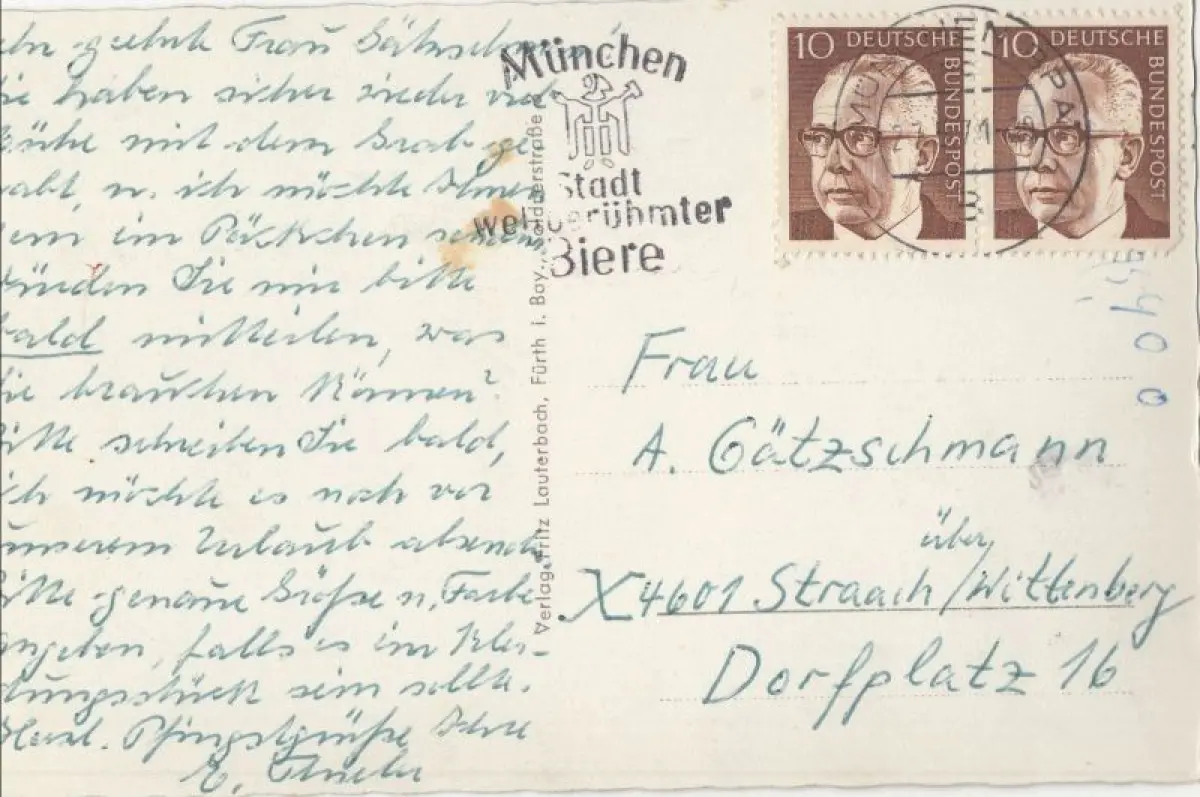 geehrte Frau Gätzschmann!
Sie haben sicher wieder viel
Mühe mit dem Grab ge-
habt, u. ich möchte Ihnen
gern ein Päckchen senden.
Würden Sie mir bitte
bald mitteilen, was
Sie brauchen können?
Bitte schreiben Sie bald,
ich möchte es noch vor
unserem Urlaub absenden.
Bitte genaue Größe u. Farbe
angeben, falls es ein Klei-
dungsstück sein sollte.
Herzl. Pfingstgrüße Ihre
E.
Verlag Fritz Lauterbach, Fürth i. Bay.,
München
Stadt
weltberühmter
Biere
10 DEUTSCHE BUNDESPOST
10 DEUTSCHE BUNDESPOST
Frau
A. Gätzschmann
über
X4601 Straach/Wittenberg
Dorfplatz 16